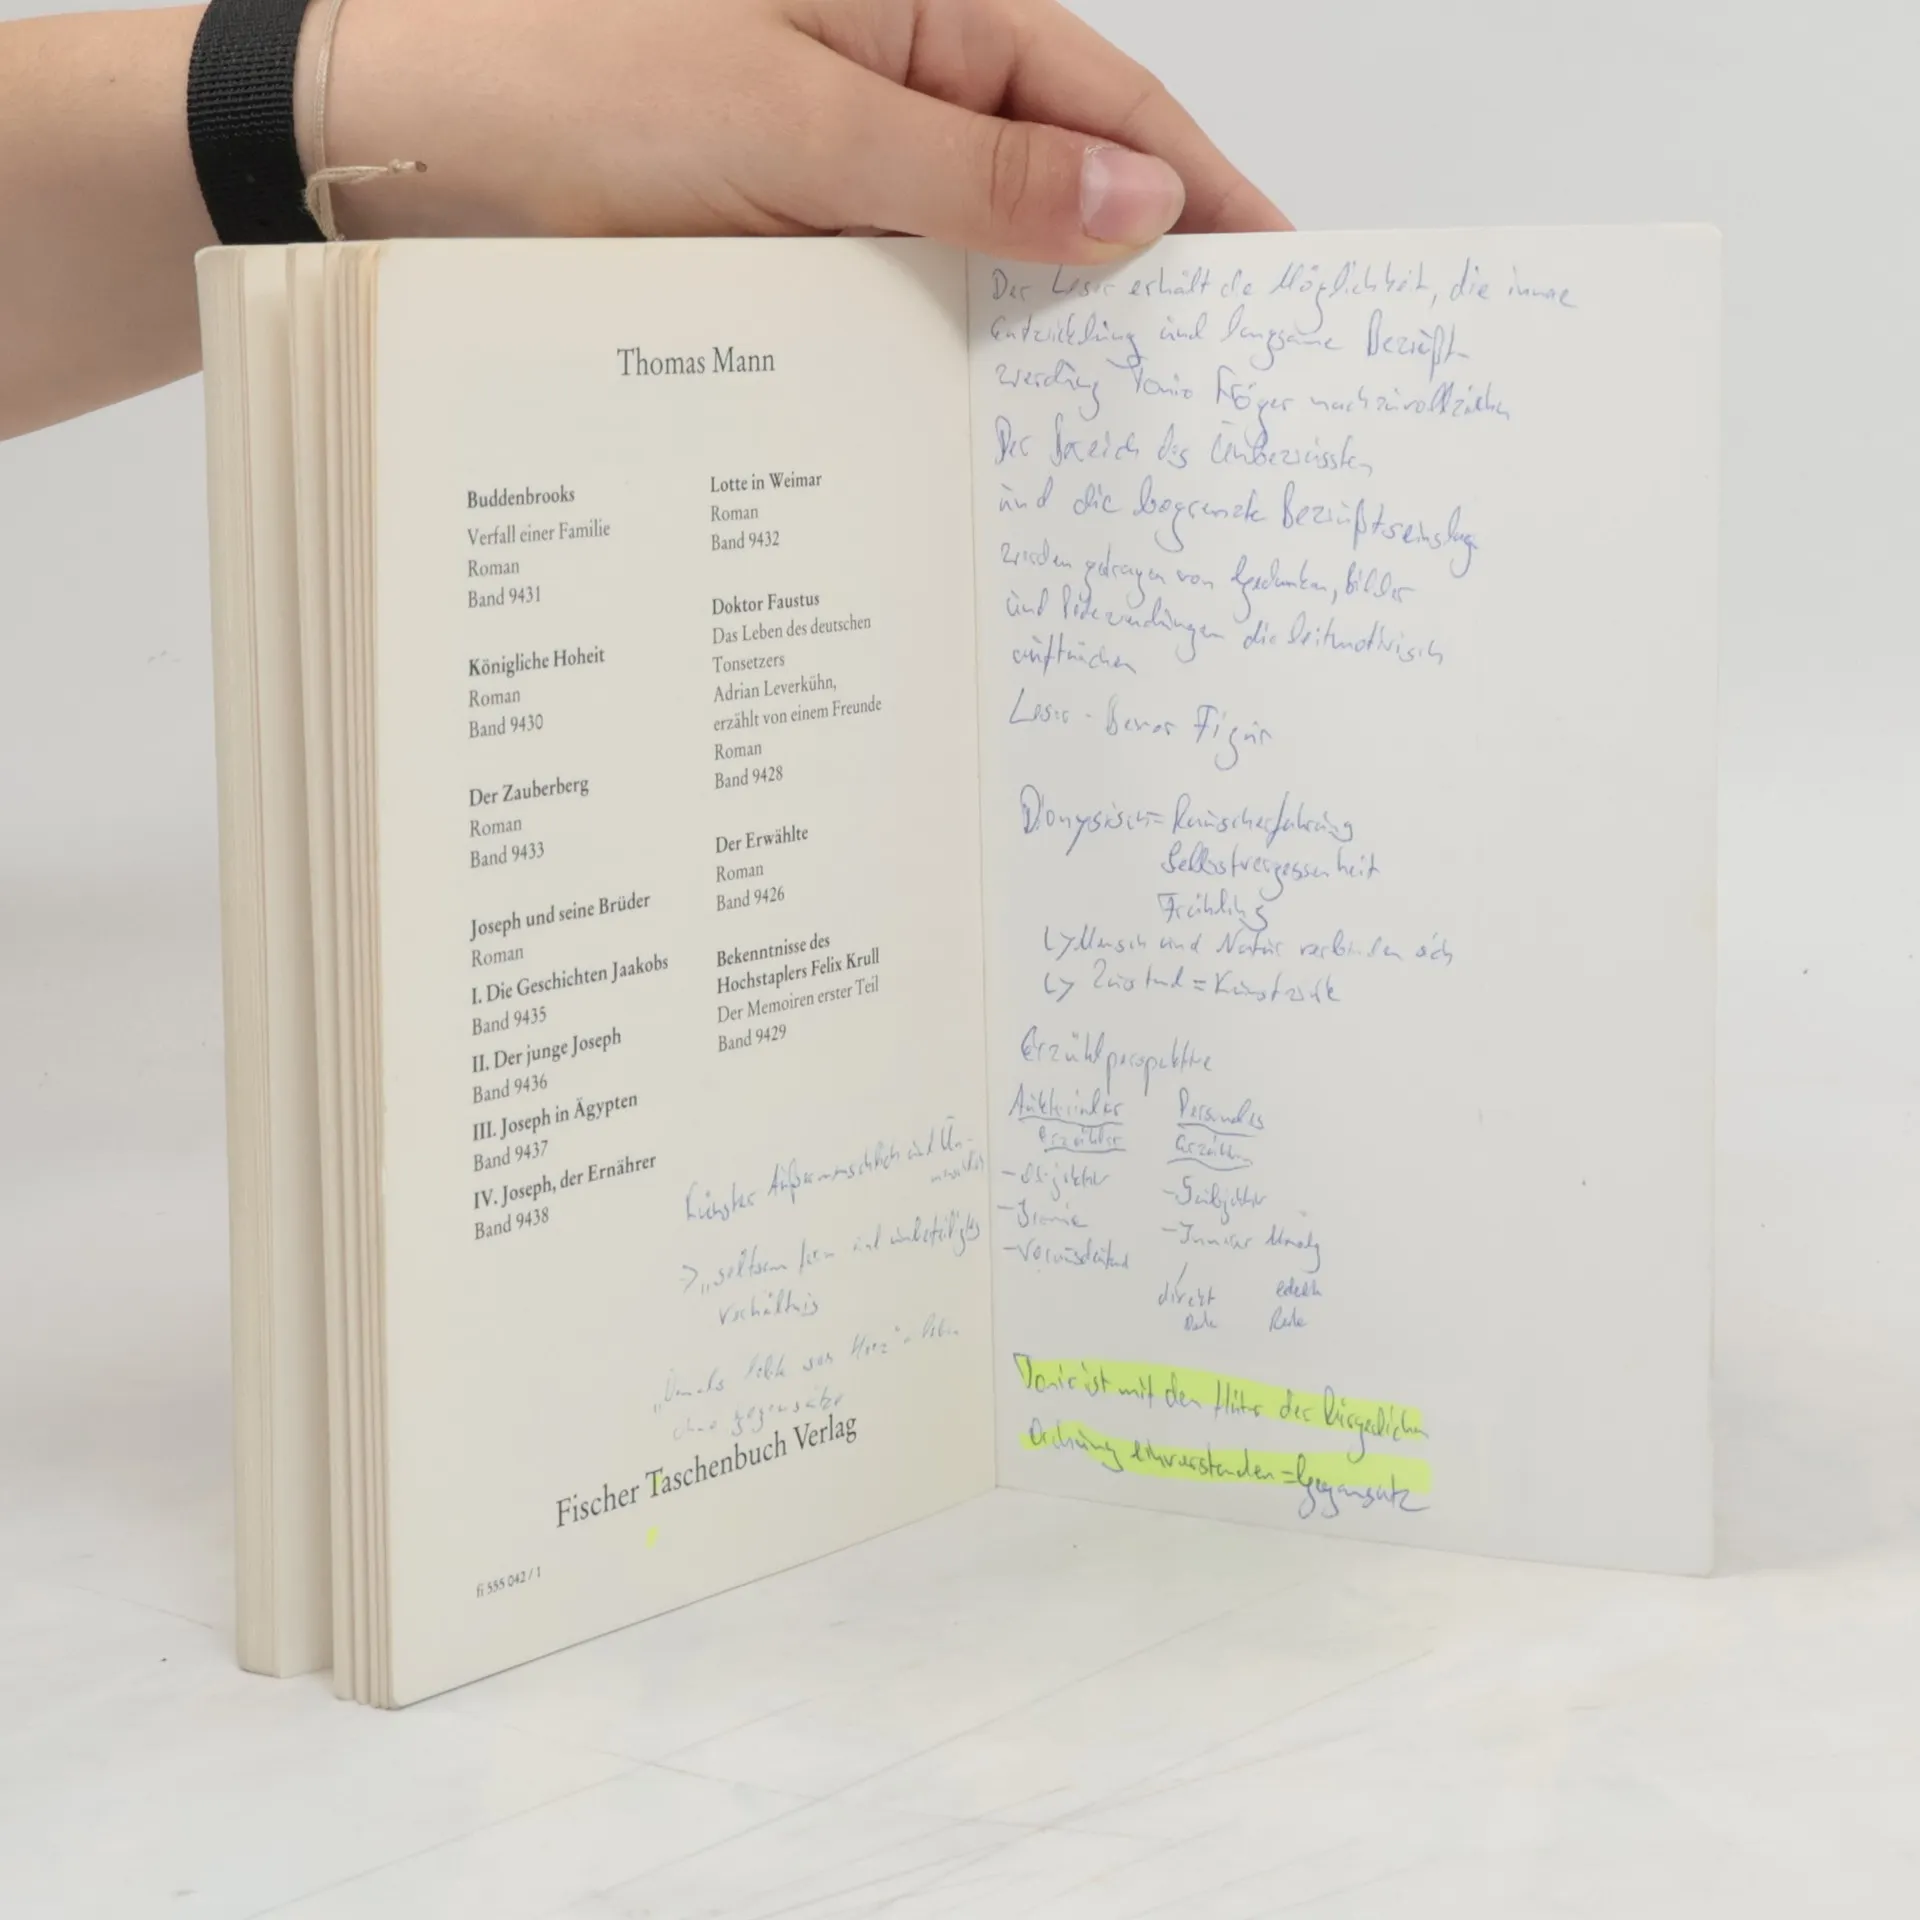 Thomas Mann
Buddenbrooks
Verfall einer Familie
Roman
Band 9431
Königliche Hoheit
Roman
Band 9430
Der Zauberberg
Roman
Band 9433
Joseph und seine Brüder
Roman
I. Die Geschichten Jaakobs
Band 9435
II. Der junge Joseph
Band 9436
III. Joseph in Ägypten
Band 9437
IV. Joseph, der Ernährer
Band 9438
Lotte in Weimar
Roman
Band 9432
Doktor Faustus
Das Leben des deutschen
Tonsetzers
Adrian Leverkühn,
erzählt von einem Freunde
Roman
Band 9428
Der Erwählte
Roman
Band 9426
Bekenntnisse des
Hochstaplers Felix Krull
Der Memoiren erster Teil
Band 9429
Künstler Außermenschlich und Un-
→ „seltsam fern und unbeteiligtes
Verhältnis
„Damals lebte sein Herz" = leben
ohne gegensätze
Fischer Taschenbuch Verlag
fi 555 042 / 1
Der Leser erhält die Möglichkeit, die innere
Entwicklung und langsame Bewußt-
werdung Tonio Kröger nachzuvollziehn
Der Bereich des Unbewussten
und die begrenzte Bewußtseinslage
werden getragen von Gedanken, bilder
und Redewendungen die leitmotivisch
auftauchen
Leser - Figur
Dionysisch = Rauscherfahrung
Selbstvergessenheit
Frühling
↳ Mensch und Natur verbinden sich
↳ Zustand = Kunstwerk
Erzählperspektive
Auktorialer
Erzähler
- Objektiv
- Ironie
- Vorausdeutend
Personales
Erzählen
- Subjektiv
- Innerer Monolog
direkt
Rede
Rede
Tonio ist mit den Hüter der bürgerlichen
Ordnung einverstanden = Gegensatz